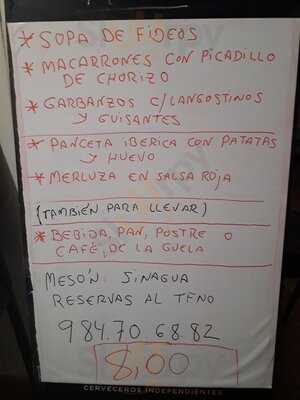 * SOPA DE FIDEOS
* MACARRONES CON PICADILLO
DE CHORIZO
* GARBANZOS C/LANGOSTINOS
Y GUISANTES
* PANCETA IBERICA CON PATATAS
Y HUEVO
* MERLUZA EN SALSA ROJA
(TAMBIÉN PARA LLEVAR)
* BEBIDA, PAN, POSTRE O
CAFÉ, DE LA GÜELA
MESÓN: SINAGUA
RESERVAS AL TFNO
984.70 68.82
8,00
CERVECEROS INDEPENDIENTES